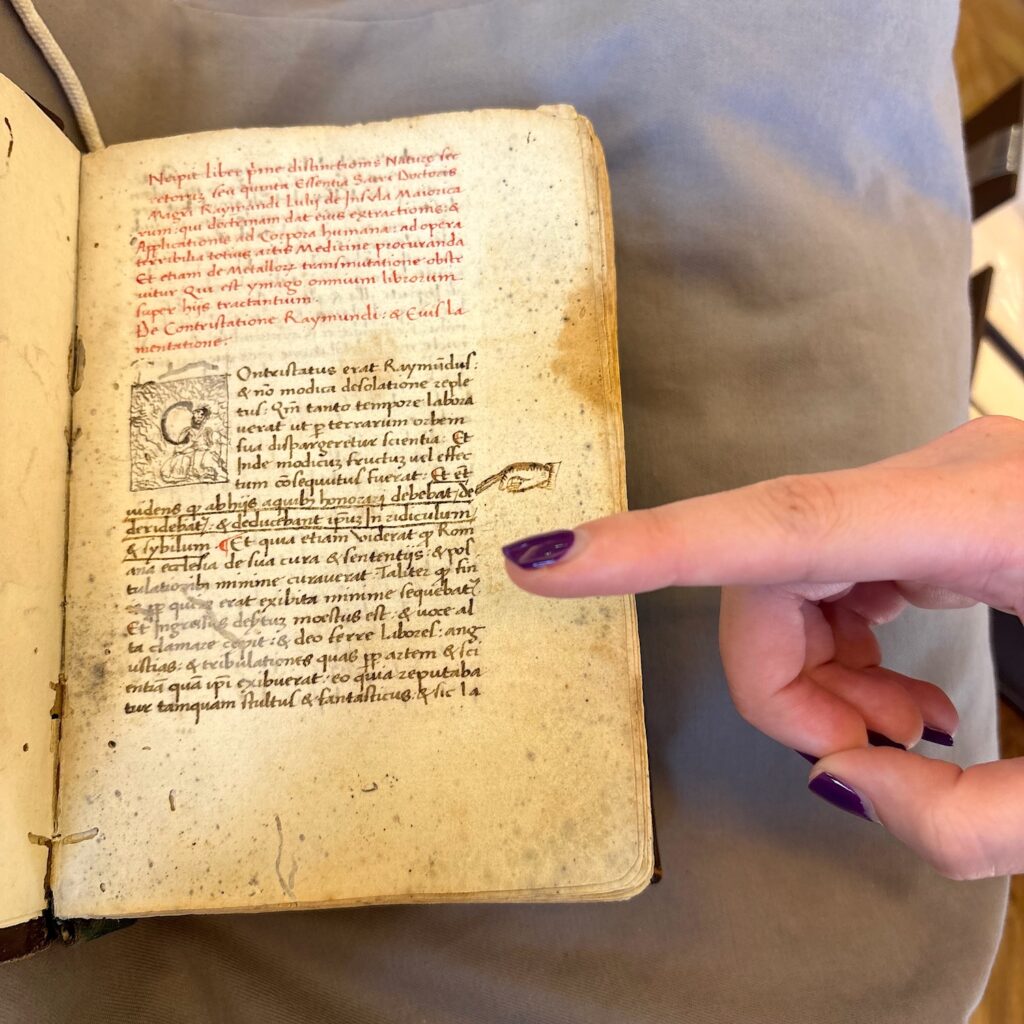 Ncipit liber p̄me distinctionis Naturę sec
retorum seu quinta Essentia Sacri Doctoris
Magri Raymundi Lulij de Insula Maiorica
rum: qui doctrinam dat eius extractionis: &
Applicationis ad Corpora humana: ad opera
terribilia totius artis Medicine procuranda
Et etiam de Metalloꝝ transmutatione obste
uitur Qui est ymago omnium librorum
super hijs tractantium.
De Contristatione Raymundi: & Eius la
mentatione.
C
Ontristatus erat Raymūdus:
& nō modica desolatione reple
tus: Qm̄ tanto tempore labora
uerat ut ꝑ terrarum orbem
sua dispargeretur scientia: Et
Inde modicuʒ fructuʒ uel effec
tum cōsequutus fuerat. Et et̄
uidens ꝙ ab hijs a quibꝫ honorari debebat: de
deridebat: & deducebant ip̄uʒ In ridiculum
& sybilum. ¶ Et quia etiam viderat ꝙ Rom
ana ecclesia de sua cura & sententijs: & pos
tulationibꝫ minime curauerat. Taliter ꝙ fin
erat exibita minime sequebat
Et Ingressus moestus est: & uoce al
ta clamare cepit: & deo ferre Labores: ang
ustias: & tribulationes quas ꝓp artem & sci
entiā quā ip̄i exibuerat. eo quia reputaba
tur tamquam stultus & fantasticus. & sic la